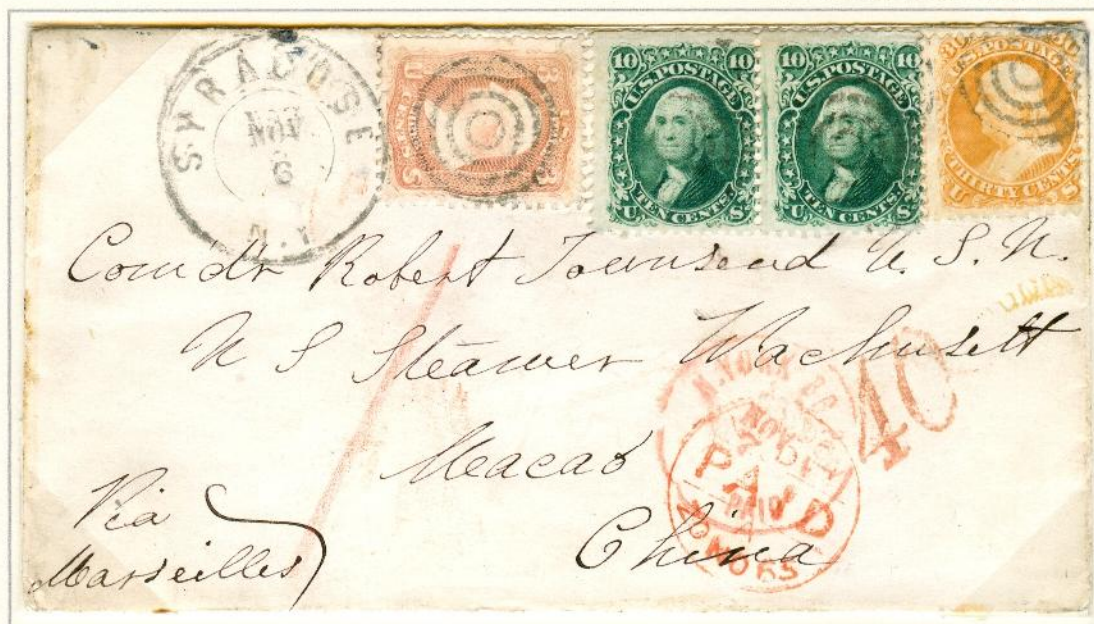 SYRACUSE
NOV
6
N.Y
3 U 3
CENTS
10 U.S. POSTAGE 10
U TEN CENTS S
10 U.S. POSTAGE 10
U TEN CENTS S
30 30
U.S. POSTAGE
U THIRTY CENTS S
Comdr Robert Townsend U. S. N.
U S Steamer Wachusett
Macao
China
Via
Marseilles
40
NOV
PAID
PAID
LONDON
65